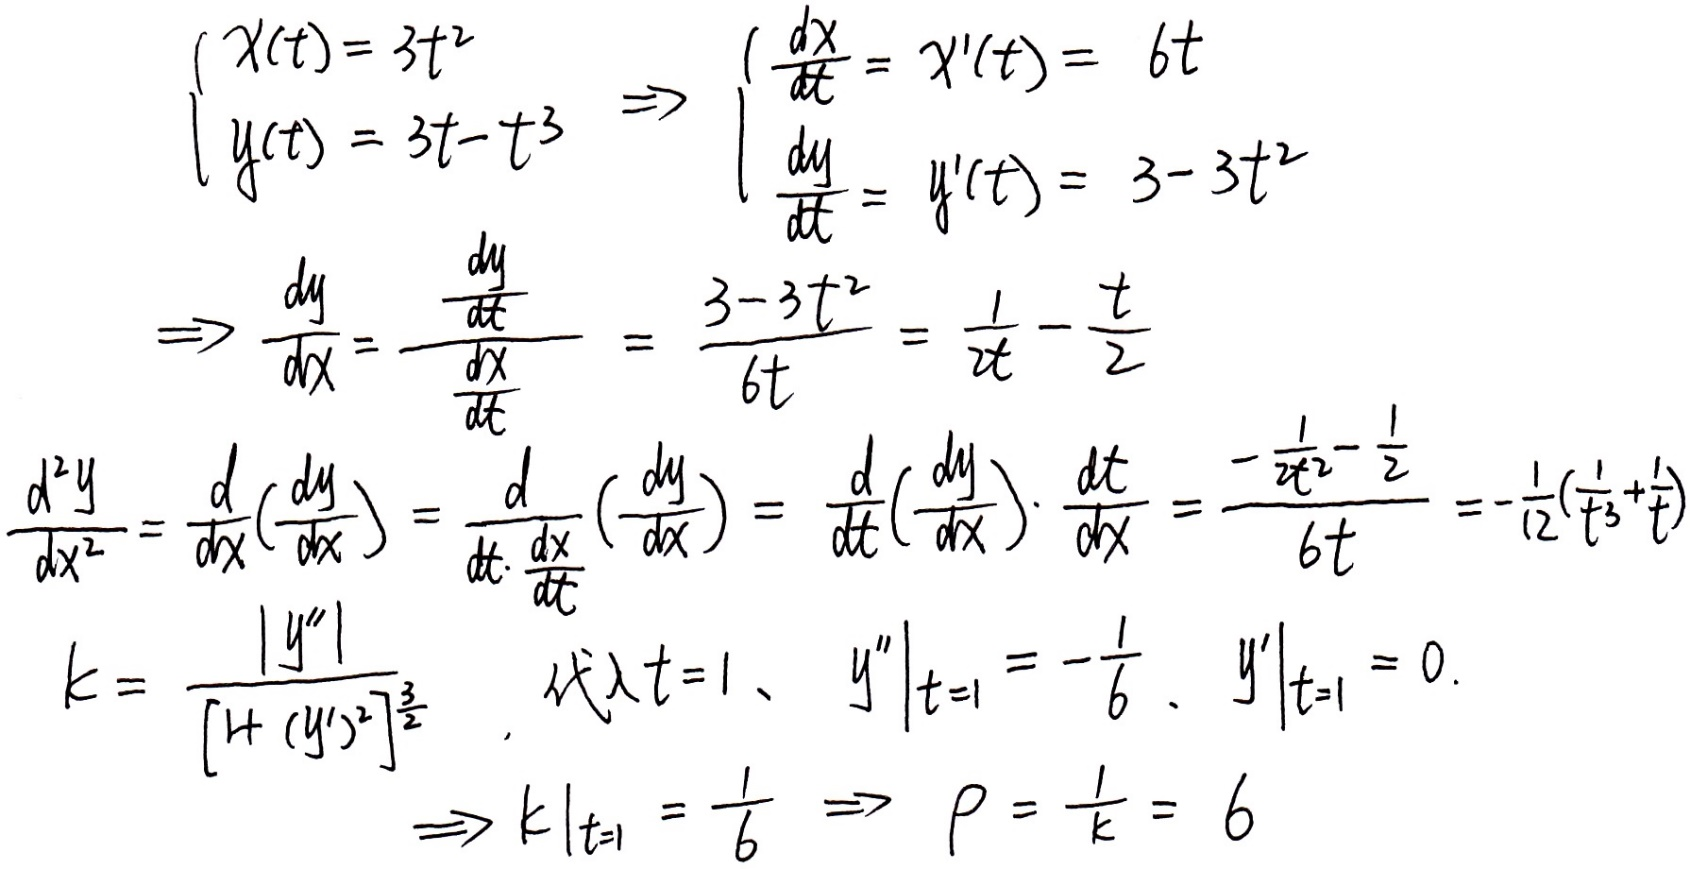 { x(t) = 3t² ⇒ { dx/dt = x'(t) = 6t
y(t) = 3t - t³ dy/dt = y'(t) = 3 - 3t²
⇒ dy/dx = (dy/dt)/(dx/dt) = (3 - 3t²)/(6t) = 1/(2t) - t/2
d²y/dx² = d/dx (dy/dx) = d/(dt · dx/dt) (dy/dx) = d/dt (dy/dx) · dt/dx = (-1/(2t²) - 1/2)/(6t) = -1/12 (1/t³ + 1/t)
k = |y''|/[1+(y')²]^(3/2) , 代入 t=1、 y''|t=1 = -1/6 、 y'|t=1 = 0.
⇒ k|t=1 = 1/6 ⇒ ρ = 1/k = 6